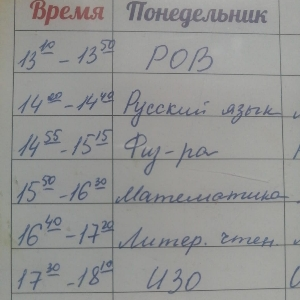 Время Понедельник
13 10 – 13 50 РОВ
14 00 – 14 40 Русский язык
14 55 – 15 15 Физ-ра
15 50 – 16 30 Математика
16 40 – 17 20 Литер. чтен
17 30 – 18 10 ИЗО